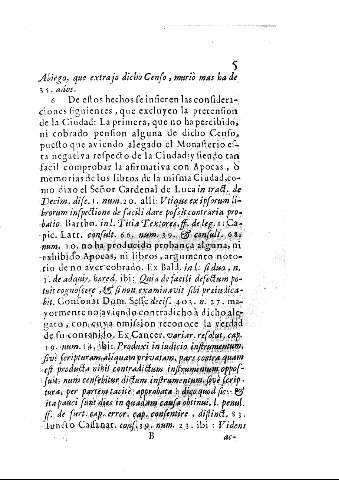 5
Abiego, que extrajo dicho Censo, murió mas ha de
35. años.
6 De estos hechos se infieren las consideraciones siguientes, que excluyen la pretension
de la Ciudad: La primera, que no ha percibido,
ni cobrado pension alguna de dicho Censo,
puesto que aviendo alegado el Monasterio esta negativa respecto de la Ciudad; y siendo tan
facil comprobar la afirmativa con Apocas, ò
memorias de los libros de la misma Ciudad, como dixo el Señor Cardenal de Luca in tract. de
Decim. disc. 1. num. 20. alli: Vtique ex ipsorum librorum inspectione de facili dare possit contraria probatio. Bartho. in l. Titia Textores, ff. de leg. 1. Capic. Latt. consult. 66. num. 39. & consul. 98.
num. 10. no ha producido probança alguna, ni
exhibido Apocas, ni libros, argumento notorio de no aver cobrado. Ex Bald. in l. si duo, n.
1. de adquir. hæred. ibi: Quia de facili defectum potuit cognoscere, & si non examinavit sibi præiudicabit. Consonat Dom. Sesse decis. 403. n. 27. mayormente no aviendo contradicho à dicho alegato, con cuya omission reconoce la verdad
de su contenido. Ex Cancer. variar. resolut. cap.
19. num. 14. ibi: Produxi in iudicio instrumentum,
sivè scripturam aliquam privatam, pars contra quam
est producta nihil contradictum instrumentum opposuit: num censebitur dictum instrumentum, sivè scriptura, per partem tacitè approbata: dico quod sic: &
ita pauci sunt dies in quadam causa obtinui, l. penul.
ff. de furt. cap. error. cap. consentire, distinct. 83.
Iuncto Cassanat. cons. 39. num. 23. ibi: Videns
B ac-